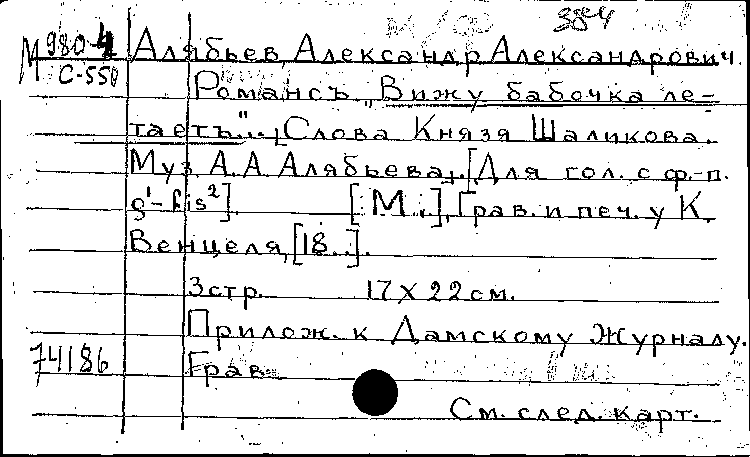 3884
М 980-4 Алябьев, Александр Александрович.
С-550 Романсъ „Вижу бабочка ле-
таетъ". Слова Князя Шаликова.
Муз. А. А. Алябьева. [Для гол. с ф.-п.
g'-fis²]. [М.], Грав. и печ. у К.
Венцеля, [18..].
3 стр. 17 X 22 см.
Прилож. к Дамскому Журналу.
74186 Грав.
См. след. карт.